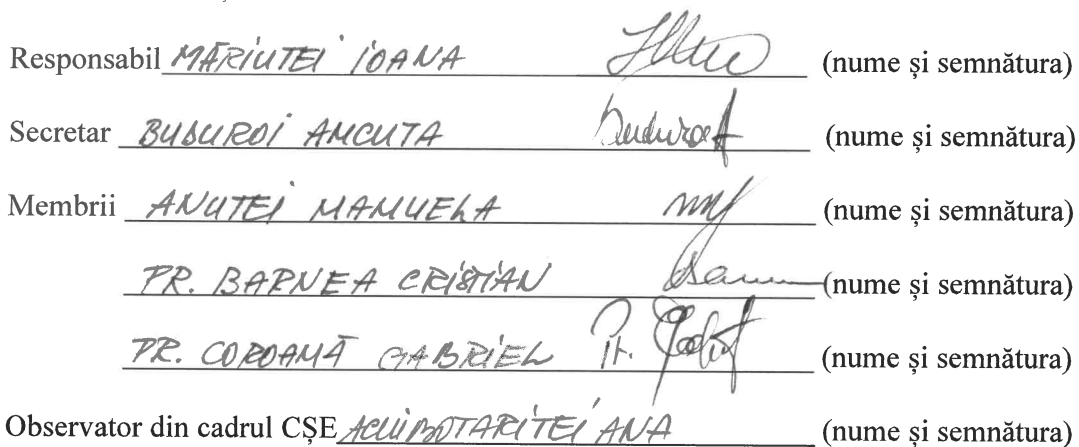 Responsabil MĂRIUTEI IOANA (nume și semnătura)
Secretar BUDUROI ANCUTA Buduroi A (nume și semnătură)
Membrii ANUTEI MANUELA (nume și semnătura)
PR. BARNEA CRISTIAN (nume și semnătura)
PR. COROAMĂ GABRIEL Pr. (nume și semnătura)
Observator din cadrul CȘE ANA (nume și semnătura)